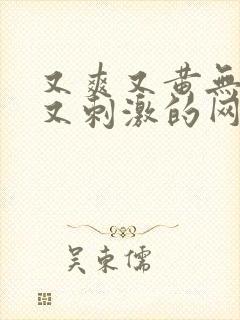 又爽又黄无
又刺激的网
吴东儒